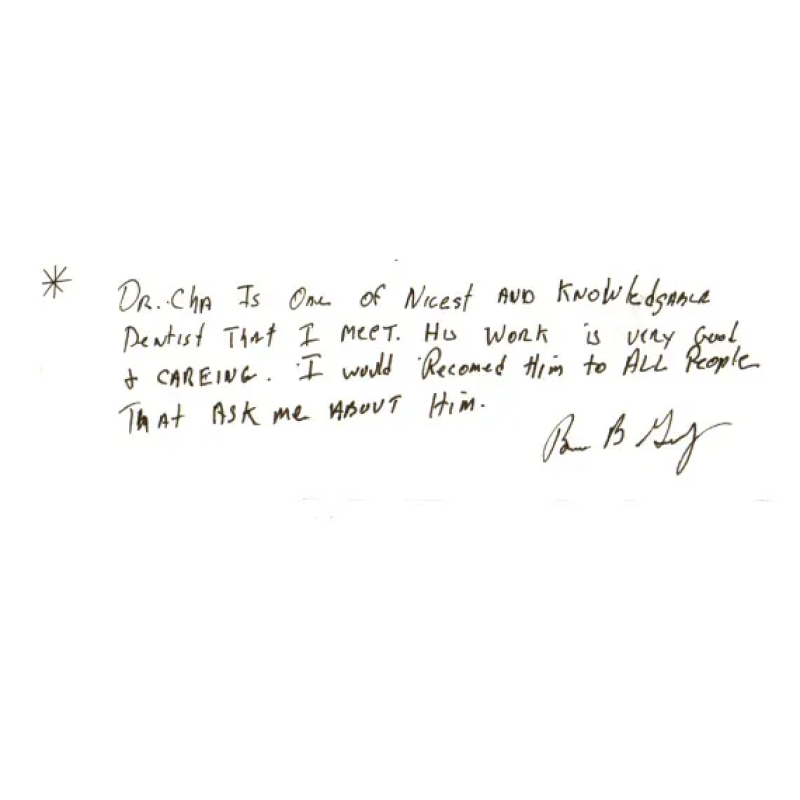 * DR. Cha Is One of Nicest AND Knowledgable
Dentist That I Meet. His Work is very Good
& CAREING. I would Recomed Him to ALL People
That Ask me ABOUT Him.
B